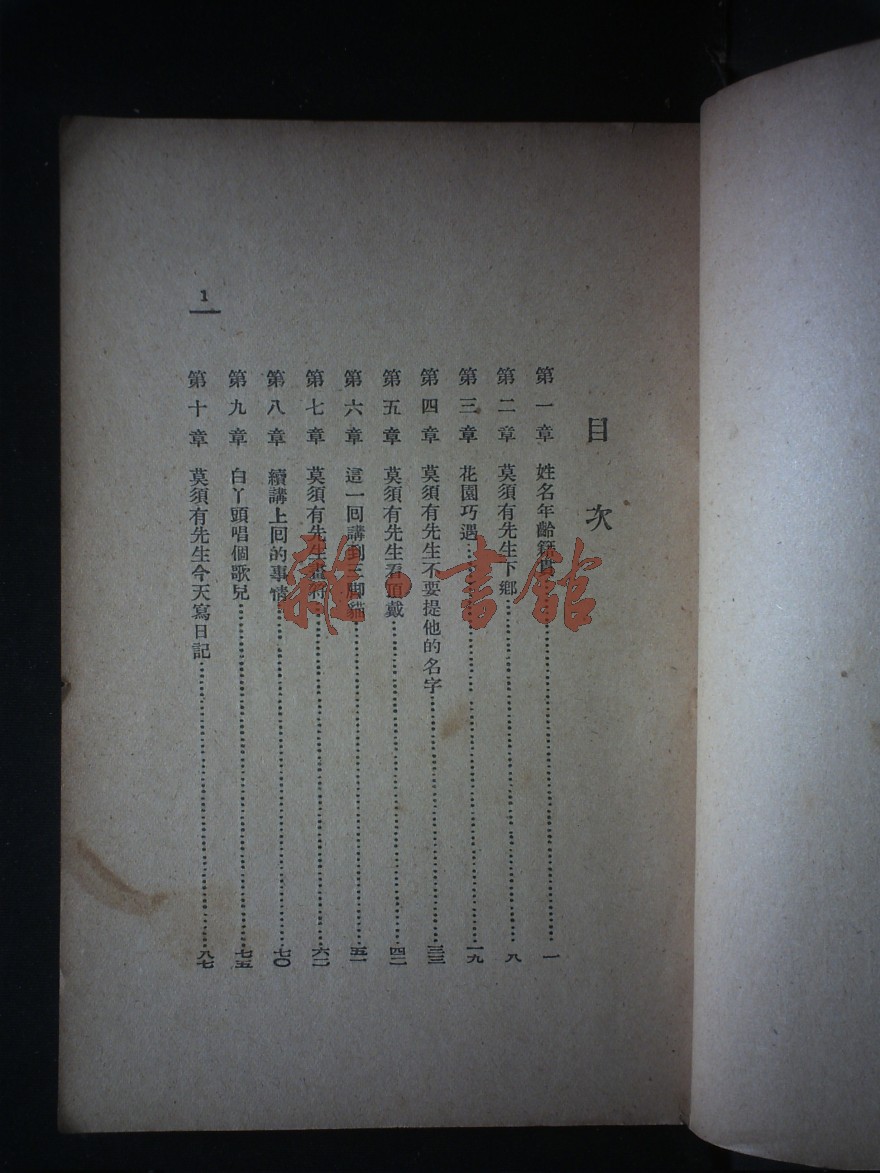 目次
第一章 姓名年齡籍貫……一
第二章 莫須有先生下鄉……八
第三章 花園巧遇……一九
第四章 莫須有先生不要提他的名字……三三
第五章 莫須有先生看頂戴……四二
第六章 這一回講到三脚貓……五一
第七章 莫須有先生畫符……六二
第八章 續講上回的事情……七〇
第九章 白丫頭唱個歌兒……七五
第十章 莫須有先生今天寫日記……八七
1
雜·書館